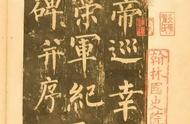 帝巡幸
帝軍紀
碑并序
翰林國史院